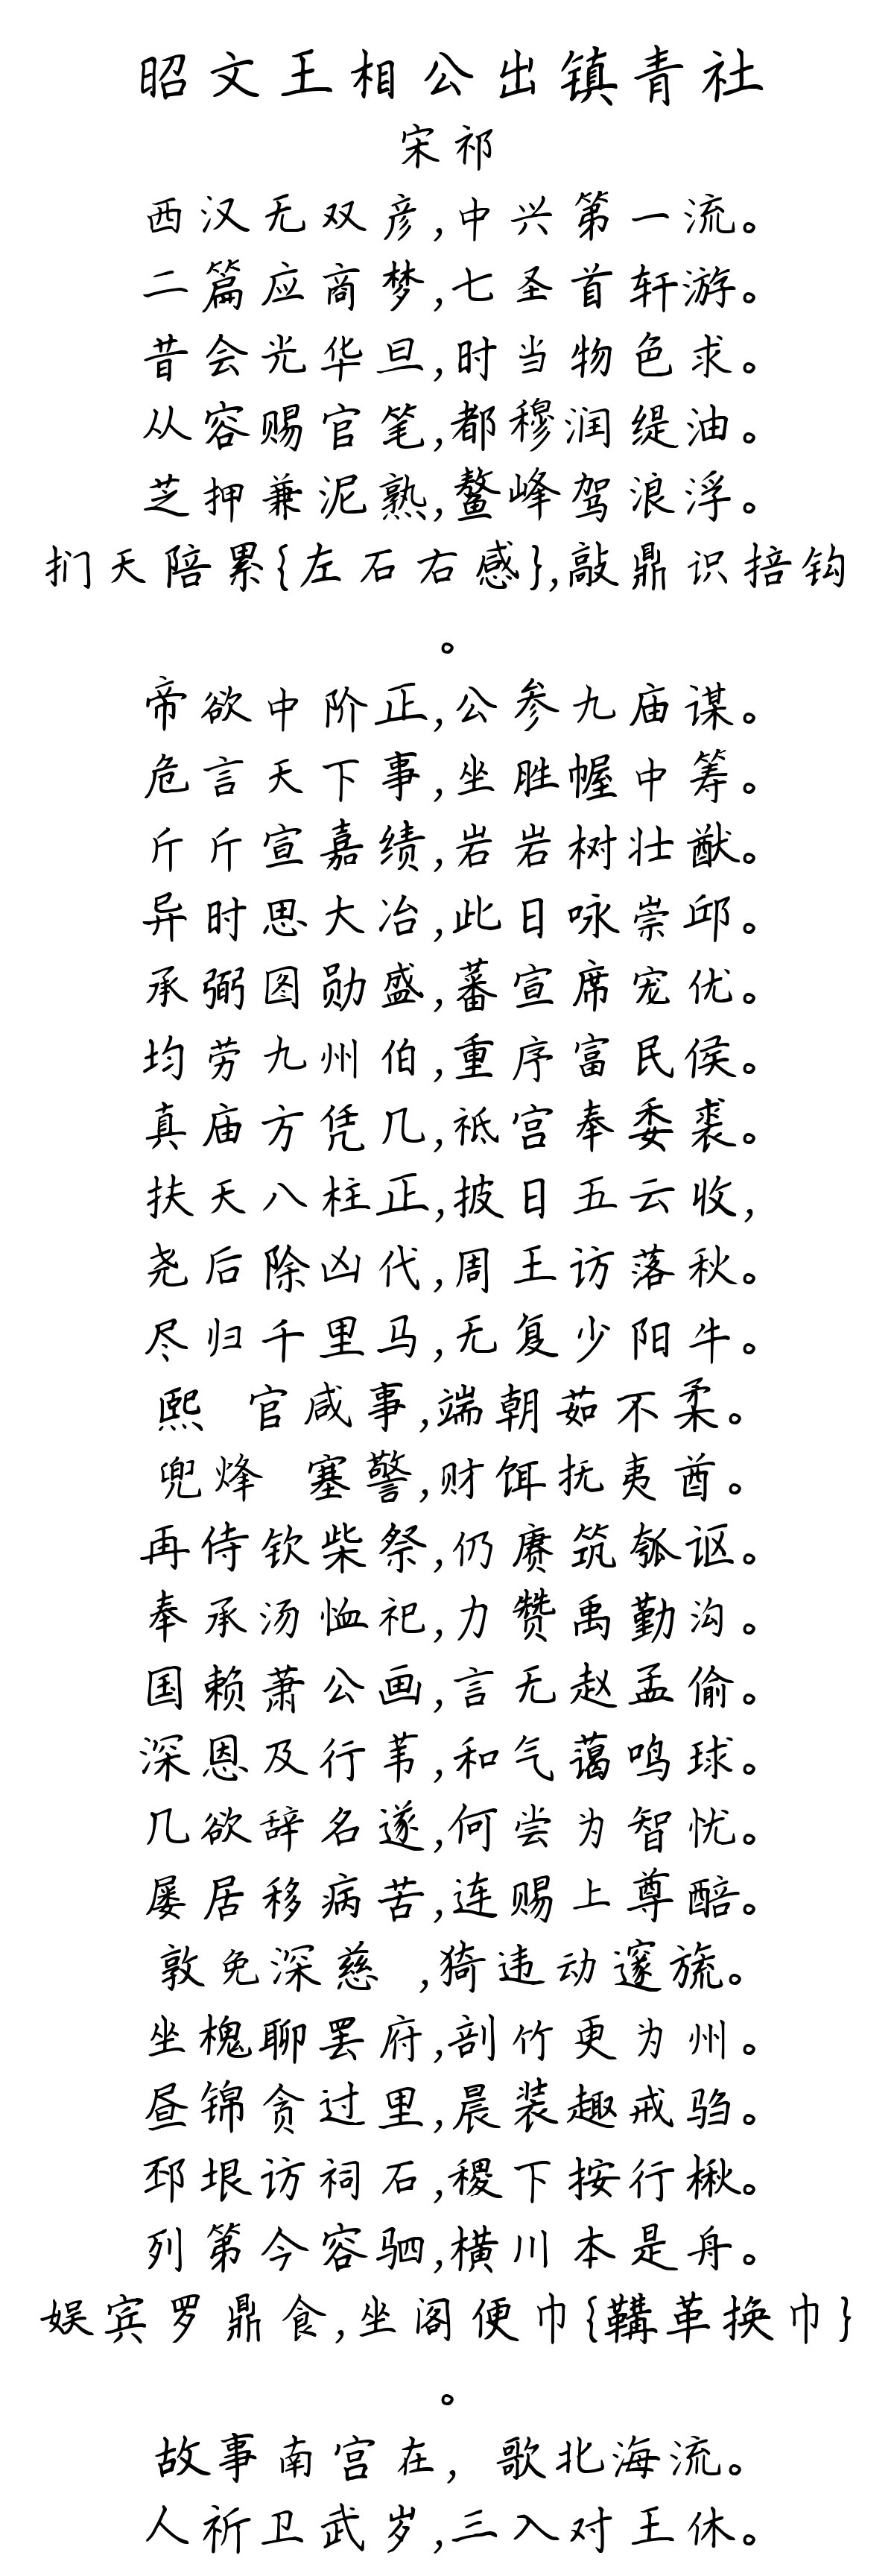 昭文王相公出镇青社
宋祁
西汉无双彦,中兴第一流。
二篇应商梦,七圣首轩游。
昔会光华旦,时当物色求。
从容赐官笔,都穆润缇油。
芝押兼泥熟,鳌峰驾浪浮。
扪天陪累{左石右感},敲鼎识掊钩
。
帝欲中阶正,公参九庙谋。
危言天下事,坐胜幄中筹。
斤斤宣嘉绩,岩岩树壮猷。
异时思大冶,此日咏崇邱。
承弼图勋盛,蕃宣席宠优。
均劳九州伯,重序富民侯。
真庙方凭几,祗宫奉委裘。
扶天八柱正,披日五云收,
尧后除凶代,周王访落秋。
尽归千里马,无复少阳牛。
熙 官咸事,端朝茹不柔。
兜烽 塞警,财饵抚夷酋。
再侍钦柴祭,仍赓筑瓠讴。
奉承汤恤祀,力赞禹勤沟。
国赖萧公画,言无赵孟偷。
深恩及行苇,和气蔼鸣球。
几欲辞名遂,何尝为智忧。
屡居移病苦,连赐上尊醅。
敦免深慈 ,猗违动邃旒。
坐槐聊罢府,剖竹更为州。
昼锦贪过里,晨装趣戒驺。
邳垠访祠石,稷下按行楸。
列第今容驷,横川本是舟。
娱宾罗鼎食,坐阁便巾{鞲革换巾}
。
故事南宫在，歌北海流。
人祈卫武岁,三入对王休。